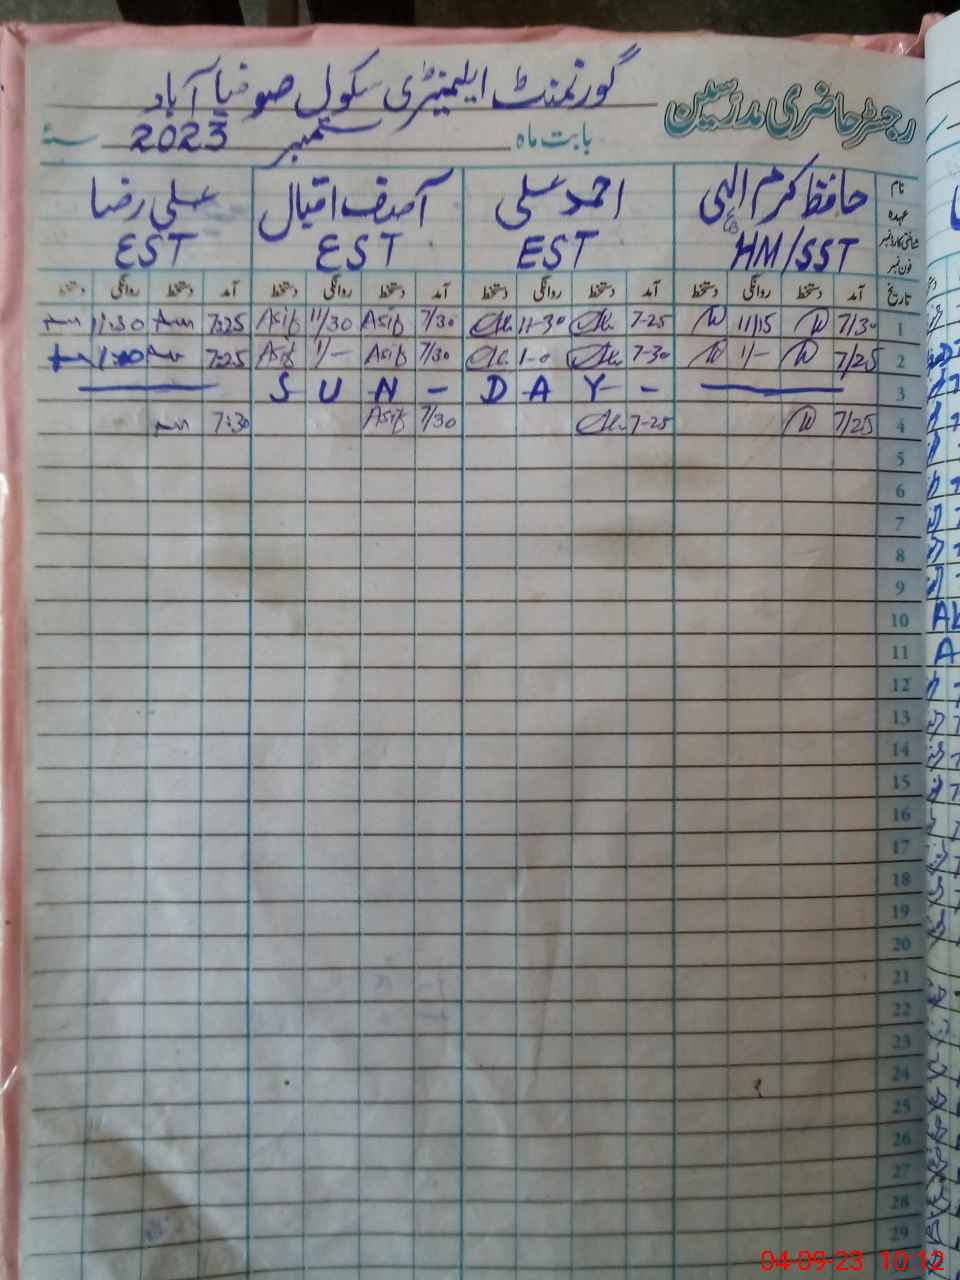 رجسٹر حاضری مدرسین
گورنمنٹ ایلیمنٹری سکول صوفیا آباد
بابت ماہ ستمبر 2023 سنہ
نام حافظ کرم الہی احمد علی آصف اقبال علی رضا
عہدہ HM/SST EST EST EST
شناختی کارڈ نمبر
فون نمبر
تاریخ آمد دستخط روانگی دستخط آمد دستخط روانگی دستخط آمد دستخط روانگی دستخط آمد دستخط روانگی دستخط
1 7/30 11/15 7-25 11-30 7/30 Asif 11/30 Asif 7:25 11:30
2 7/25 1/- 7-30 1-0 7/30 Asif 1/- Asif 7:25 1:00
3 SUN - DAY -
4 7/25 7-25 7/30 Asif 7:30
5
6
7
8
9
10
11
12
13
14
15
16
17
18
19
20
21
22
23
24
25
26
27
28
29
04-09-23 10:12